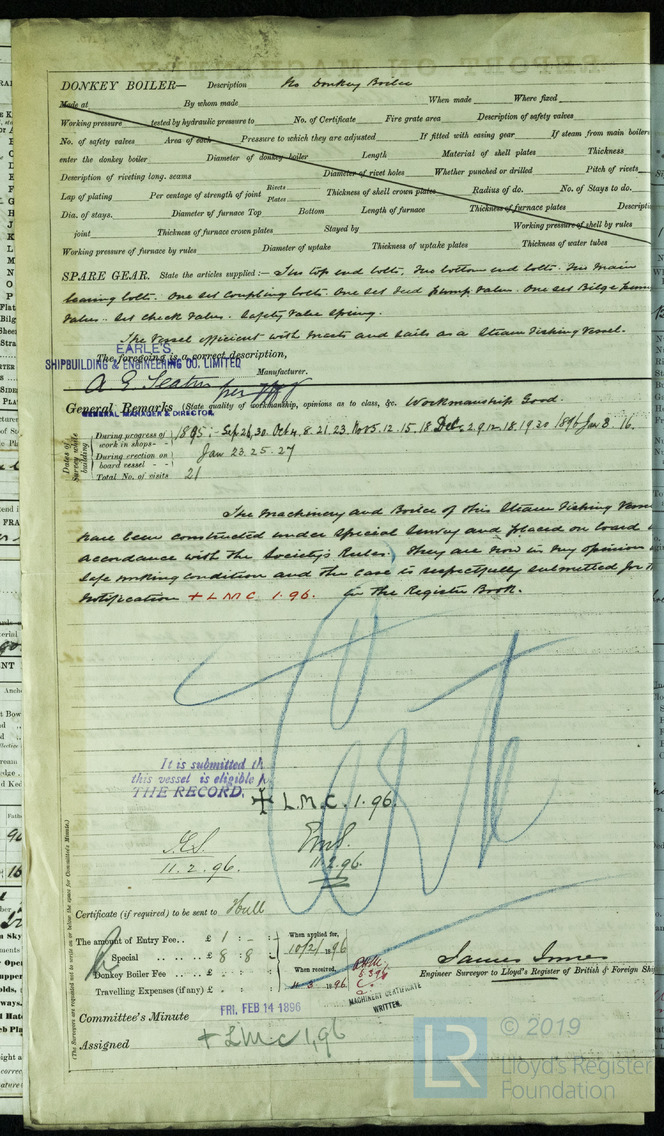 DONKEY BOILER— Description No Donkey Boiler
Made at By whom made When made Where fixed
Working pressure tested by hydraulic pressure to No. of Certificate Fire grate area Description of safety valves
No. of safety valves Area of each Pressure to which they are adjusted If fitted with easing gear If steam from main boilers
enter the donkey boiler Diameter of donkey boiler Length Material of shell plates Thickness
Description of riveting long. seams Diameter of rivet holes Whether punched or drilled Pitch of rivets
Lap of plating Per centage of strength of joint Rivets Plates Thickness of shell crown plates Radius of do. No. of Stays to do.
Dia. of stays. Diameter of furnace Top Bottom Length of furnace Thickness of furnace plates Descripti
joint Thickness of furnace crown plates Stayed by Working pressure of shell by rules
Working pressure of furnace by rules Diameter of uptake Thickness of uptake plates Thickness of water tubes
SPARE GEAR. State the articles supplied:— Two top end bolts, Two bottom end bolts. Two Main
bearing bolts. One set Coupling bolts One set feed pump valves. One set Bilge pump
valves. Set check valves. Safety Valve Spring.
The Vessel efficient with Masts and Sails as a Steam Fishing Vessel.
EARLE'S
The foregoing is a correct description,
SHIPBUILDING & ENGINEERING CO. LIMITED
Manufacturer.
A E Seaton per
GENERAL MANAGER & DIRECTOR.
General Remarks (State quality of workmanship, opinions as to class, &c. Workmanship Good.
Dates of Survey while building
During progress of work in shops - - 1895:- Sep 26, 30. Oct 4. 8. 21. 23. Nov 5. 12. 15. 18 Dec 2. 9. 12. 18. 19. 20 1896 Jan 3. 16.
During erection on board vessel - - Jan 23. 25. 27
Total No. of visits 21
The Machinery and Boiler of this Steam Fishing Vesse
have been constructed under Special Survey and placed on board
accordance with the Society's Rules. They are now in my opinion
safe working condition and the case is respectfully submitted for
notification + L M C 1. 96. in the Register Book.
It is submitted th
this vessel is eligible
THE RECORD. + L.M.C. 1. 96.
11. 2. 96. 11. 2. 96.
(The Surveyors are requested not to write on or below the space for Committee's Minute.)
Certificate (if required) to be sent to Hull
The amount of Entry Fee.. £ 1 : - : When applied for,
Special £ 8 : 8 : 10/2/1896
Donkey Boiler Fee £ - : When received,
Travelling Expenses (if any) £ - : 1896
James Innes
Engineer Surveyor to Lloyd's Register of British & Foreign Shi
MACHINERY CERTIFICATE
WRITTEN.
Committee's Minute FRI. FEB 14 1896
Assigned + LMC 1,96
LR © 2019
Lloyd's Register
Foundation